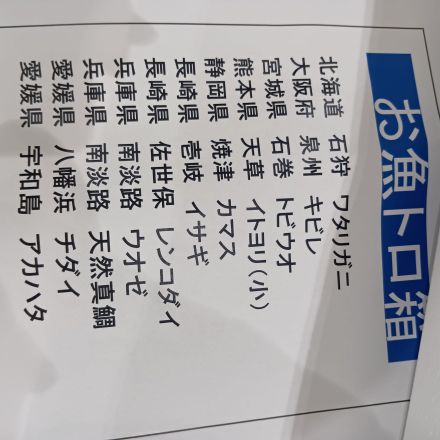 お魚トロ箱
北海道 石狩 ワタリガニ
大阪府 泉州 キビレ
宮城県 石巻 トビウオ
熊本県 天草 イトヨリ(小)
静岡県 焼津 カマス
長崎県 壱岐 イサギ
長崎県 佐世保 レンコダイ
兵庫県 南淡路 ウオゼ
兵庫県 南淡路 天然真鯛
愛媛県 八幡浜 チダイ
愛媛県 宇和島 アカハタ